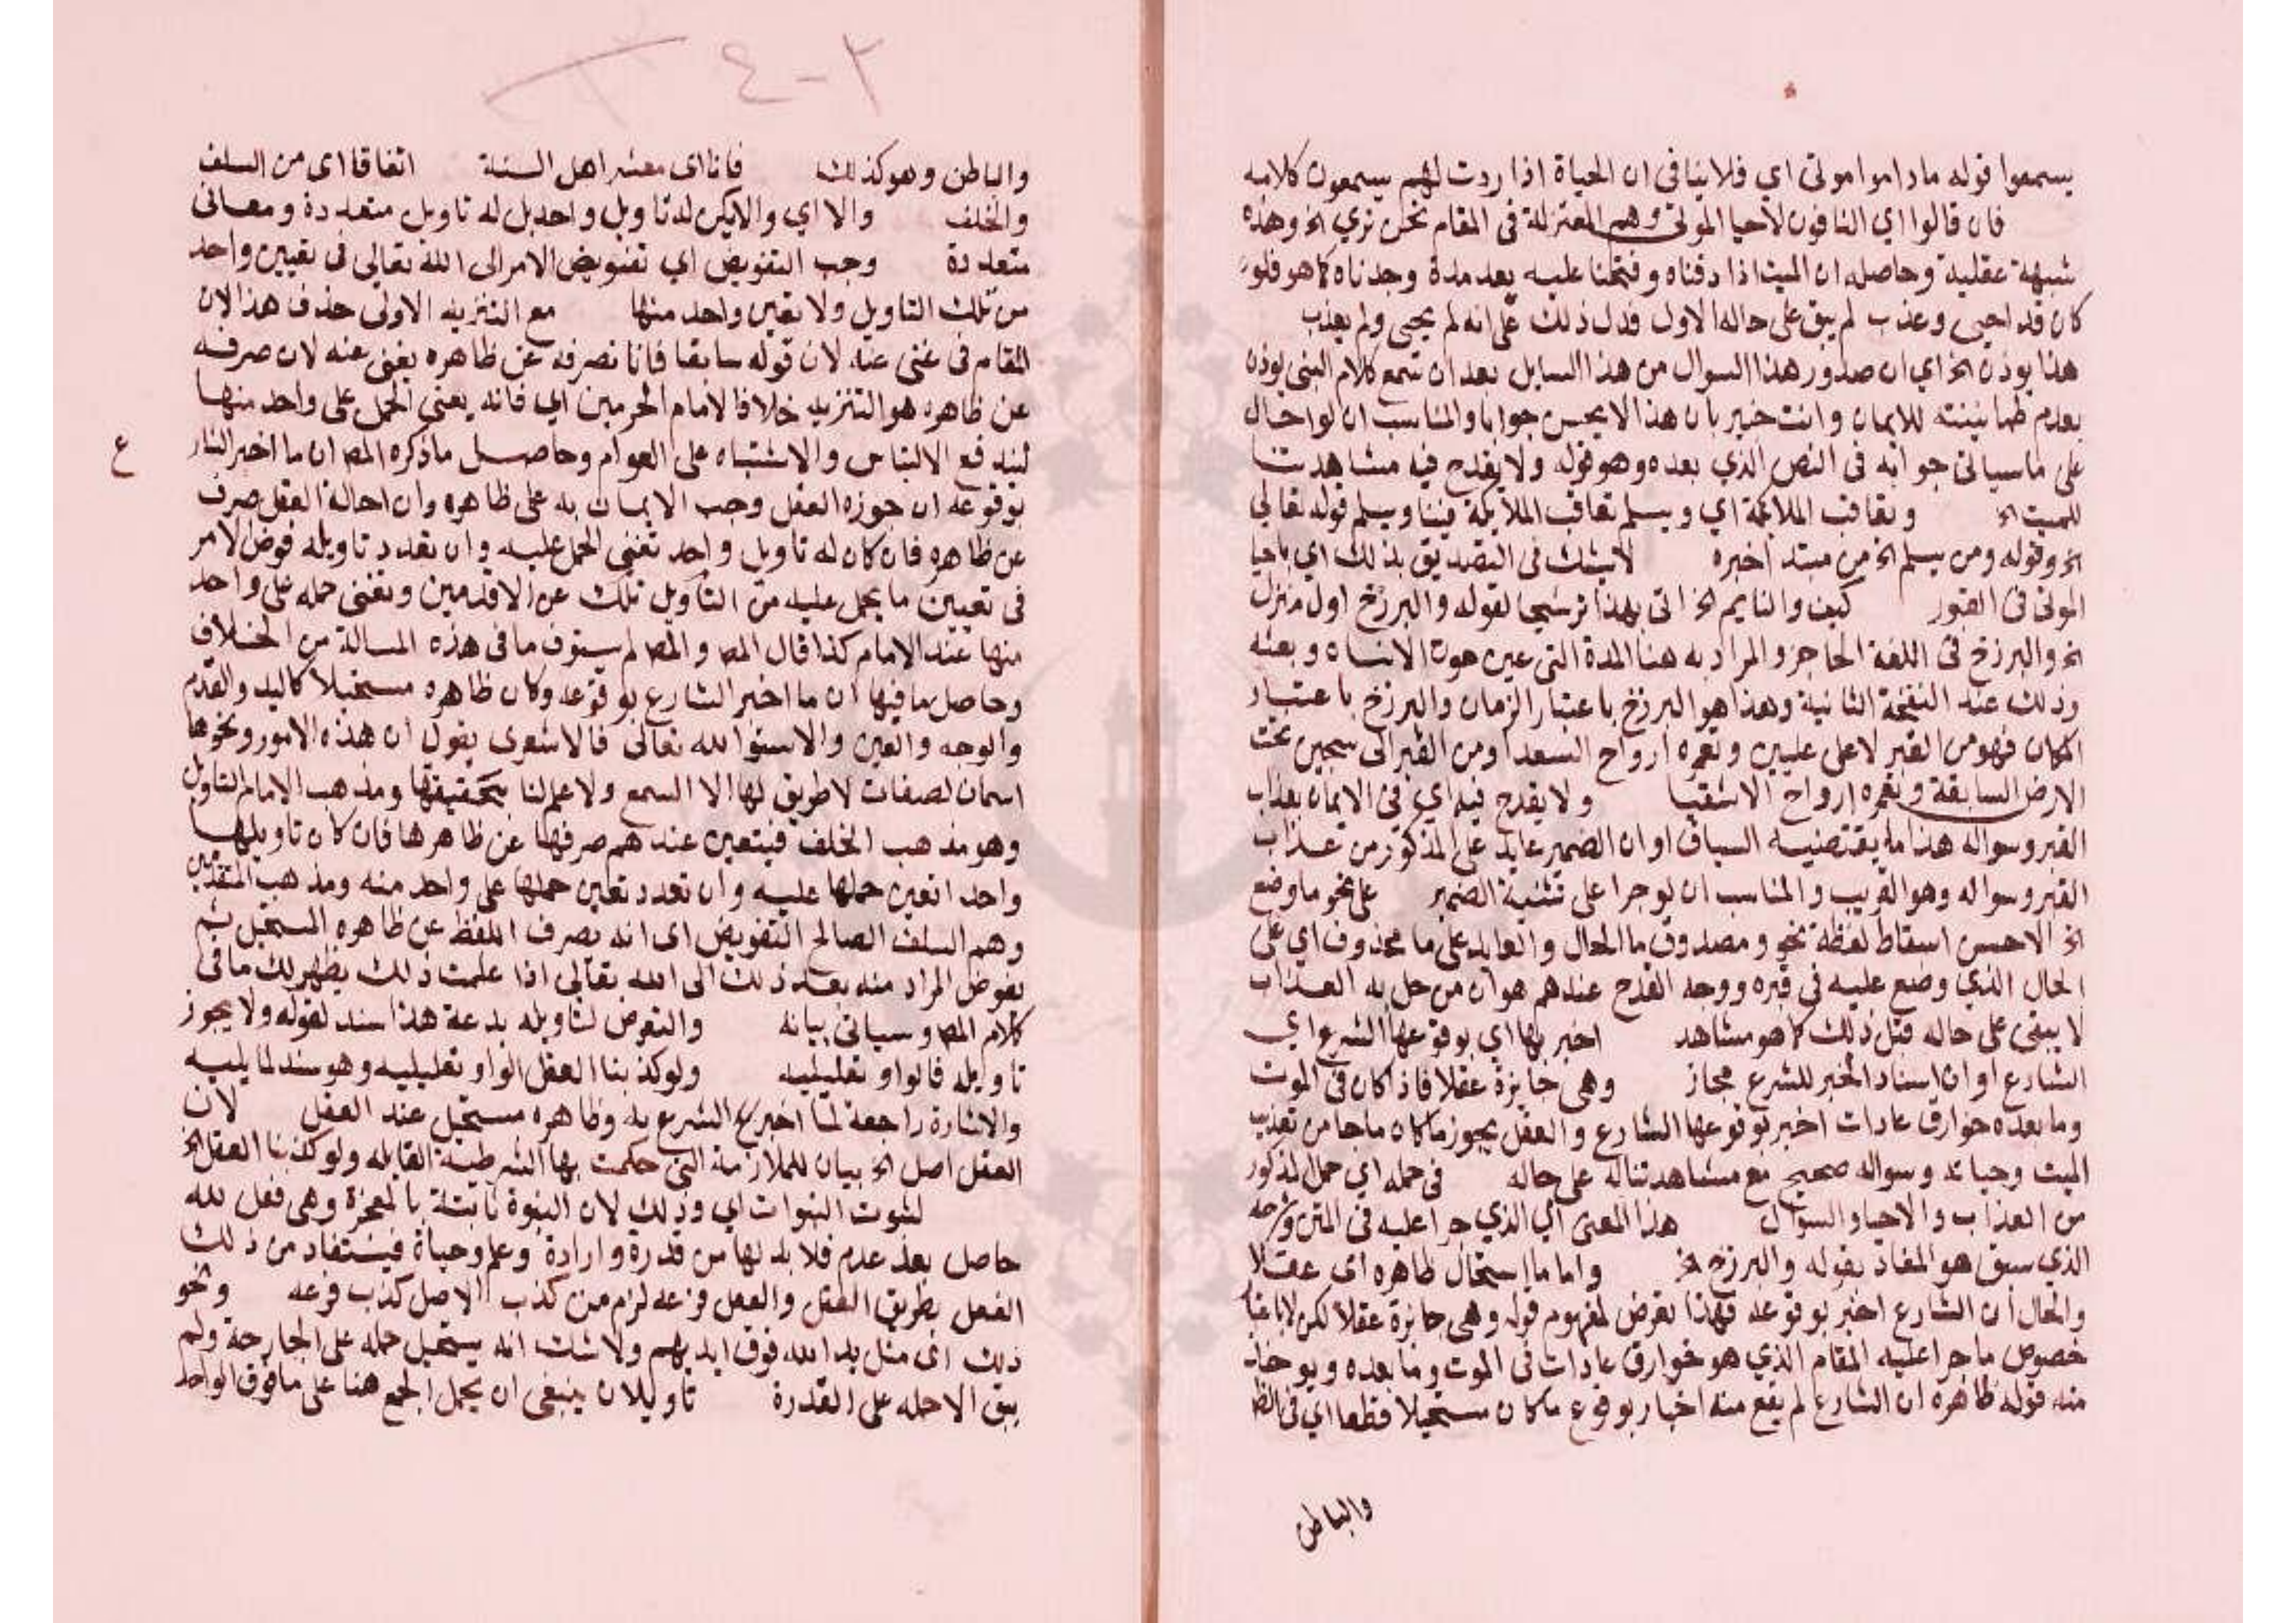 يسمعوا قوله ماداموا موتى اي فلاينافى ان الحياة اذا ردت لهم يسمعون كلامه
فان قالوا اي النافون لاحيا الموتى وهم المعتزلة فى المقام نحن نري الخ وهذه
شبهة عقلية وحاصله ان الميت اذا دفناه وفتحنا عليه بعد مدة وجدناه كما هو فلو
كان قد احيى وعذب لم يبق على حاله الاول فدل ذلك على انه لم يحيى ولم يعذب
هذا يوذن الخ اي ان صدور هذا السوال من هذا السايل بعد ان سمع كلام النبي يوذن
بعدم طمانينته للايمان وانت خبير بان هذا لا يحسن جوابا والمناسب ان لو احال
على ماسياتى جوابه فى النص الذي بعده وهو قوله ولا يقدح فيه مشاهدتنا
للميت الخ وتعاقب الملائكة اي ويسلم تعاقب الملايكة فينا ويسلم قوله تعالي
الخ وقوله ومن يسلم الخ من مبتدا خبره لايشك فى التصديق بذلك اي باحيا
الموتى فى القبور كيف والنايم الخ اتى بهذا ترشيحا لقوله والبرزخ اول منزل
الخ والبرزخ فى اللغة الحاجز والمراد به هنا المدة التى عين موت الانسان وبعثه
وذلك عند النفخة الثانية وهذا هو البرزخ باعتبار الزمان والبرزخ باعتبار
المكان فهو من القبر لاعلى عليين وتعمره ارواح السعدا ومن القبر الى سجين تحت
الارض السابقة وتعمره ارواح الاشقيا ولا يقدح فيه اي فى الايمان بعذاب
القبر وسواله هذا ما يقتضيه السياق او ان الضمير عايد على المذكور من عذاب
القبر وسواله وهو القريب والمناسب ان لو جرا على تثنية الضمير على نحو ما وضع
الخ الاحسن اسقاط لفظة نحو ومصدوق ما الحال والعايد على ما محذوف اي على
الحال الذي وضع عليه فى قبره ووجه القدح عندهم هو ان من حل به العذاب
لا يبقى على حاله قبل ذلك كما هو مشاهد اخبر بها اي بوقوعها الشرع اي
الشارع او ان اسناد الخبر للشرع مجاز وهى جايزة عقلا فاذا كان فى الموت
وما بعده خوارق عادات اخبر بوقوعها الشارع والعقل يجوزها كان ماجا من تعذيب
الميت وحياته وسواله صحيح مع مشاهدتنا له على حاله فى حمله اي حمل المذكور
من العذاب والاحيا والسوال هذا المعنى اي الذي جرا عليه فى المتن وشرحه
الذي سبق هو المفاد بقوله والبرزخ الخ واما ما استحال ظاهره اى عقلا
والحال ان الشارع اخبر بوقوعه فهذا تعرض لمفهوم قوله وهى جايزة عقلا لكن لا باعتبار
خصوص ما جرا عليه المقام الذي هو خوارق عادات فى الموت وما بعده ويوخذ
منه قوله ظاهره ان الشارع لم يقع منه اخبار بوقوع ما كان مستحيلا قطعا اي فى الظا
والباطن
٢-٤
والباطن وهو كذلك فانا اى معشر اهل السنة اتفاقا اى من السلف
والخلف والا اي والا يكن له تاويل واحد بل له تاويل متعددة ومعانى
متعددة وجب التفويض اي تفويض الامر الى الله تعالي فى تعيين واحد
من تلك التاويل ولا تعين واحد منها مع التنزيه الاولى حذف هذا لان
المقام فى غنى عنه لان قوله سابقا فانا نصرفه عن ظاهره يغنى عنه لان صرفه
عن ظاهره هو التنزيه خلافا لامام الحرمين اي فانه يعنى الحمل على واحد منها
ليندفع الالتباس والاشتباه على العوام وحاصل ما ذكره المص ان ما اخبر الشارع
بوقوعه ان جوزه العقل وجب الايمان به على ظاهره وان احاله العقل صرف
عن ظاهره فان كان له تاويل واحد تعين الحمل عليه وان تعدد تاويله فوض الامر
فى تعيين ما يحمل عليه من التاويل تلك عن الاقدمين وتعين حمله على واحد
منها عند الامام كذا قال المص والمص لم يستوف ما فى هذه المسالة من الخلاف
وحاصل ما فيها ان ما اخبر الشارع بوقوعه وكان ظاهره مستحيلا كاليد والقدم
والوجه والعين والاستوا لله تعالى فالاشعرى يقول ان هذه الامور ونحوها
اسمان لصفات لا طريق لها الا السمع ولا علم لنا بحقيقتها ومذهب الامام التاويل
وهو مذهب الخلف فيتعين عندهم صرفها عن ظاهرها فان كان تاويلها
واحد اتعين حملها عليه وان تعدد تعين حملها على واحد منه ومذهب المتقدمين
وهم السلف الصالح التفويض اى انه يصرف اللفظ عن ظاهره المستحيل ثم
يفوض المراد منه بعد ذلك الى الله تعالي اذا علمت ذلك يظهر لك ما فى
كلام المص وسياتى بيانه والتعرض لتاويله بدعة هذا سند لقوله ولا يجوز
تاويله فالواو تعليليه ولو كذبنا العقل الواو تعليليه وهو سند لما يليه
والاشارة راجعة لما اخبر الشرع به وظاهره مستحيل عند العقل لان
العقل اصل الخ بيان للملازمة التى حكمت بها الشرطية القايله ولو كذبنا العقل الخ
لثبوت النبوات اي وذلك لان النبوة ثابتة بالمعجزة وهى فعل لله
حاصل بعد عدم فلا بد لها من قدرة وارادة وعلم وحياة فيستفاد من ذلك
الفعل بطريق العقل والعقل فرعه لزم من كذب الاصل كذب فرعه ونحو
ذلك اى مثل يد الله فوق ايديهم ولا شك انه يستحيل حمله على الجارحة ولم
يبق الا حمله على القدرة تاويلان ينبغى ان يحمل الجمع هنا على ما فوق الواحد
ع